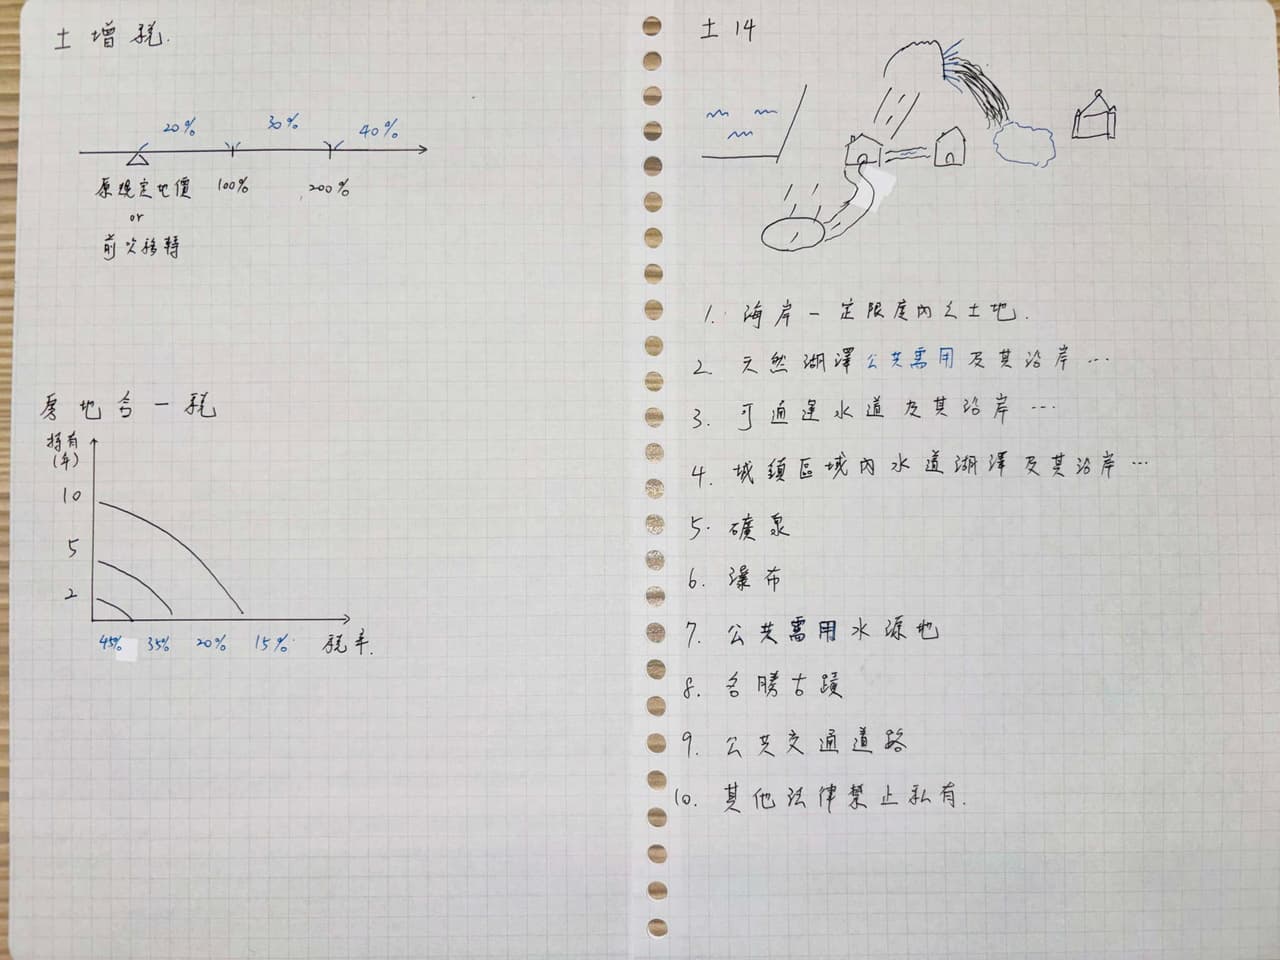 土增稅.
20% 30% 40%
原規定地價 100% 200%
or
前次移轉
房地合一稅
持有
(年)
10
5
2
45% 35% 20% 15% 稅率.
土14
1. 海岸一定限度內之土地.
2. 天然湖澤公共需用及其沿岸…
3. 可通運水道及其沿岸…
4. 城鎮區域內水道湖澤及其沿岸…
5. 礦泉
6. 瀑布
7. 公共需用水源地
8. 名勝古蹟
9. 公共交通道路
10. 其他法律禁止私有.